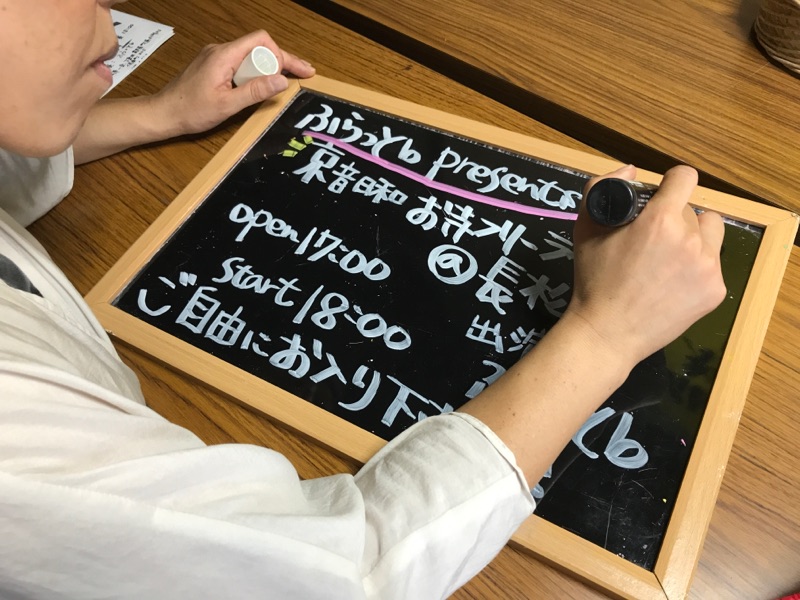 ふらっとb presents
京音日和 お寺フリーラ
@長松
open 17:00
出演
Start 18:00
ご自由にお入り下さ
とb